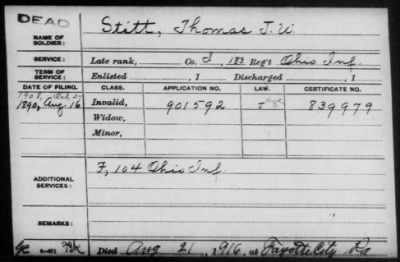 DEAD
NAME OF SOLDIER: Stitt, Thomas J. W
SERVICE: Late rank, Co. I, 183 Reg't Ohio Inf.
TERM OF SERVICE: Enlisted , 1 Discharged , 1
DATE OF FILING. CLASS. APPLICATION NO. LAW. CERTIFICATE NO.
1908,
1890, Aug. 16 Invalid, 901592 J 839979
Widow,
Minor,
ADDITIONAL SERVICES: F, 104 Ohio Inf.
REMARKS:
Died Aug 21, 1916, at Fayette City Pa